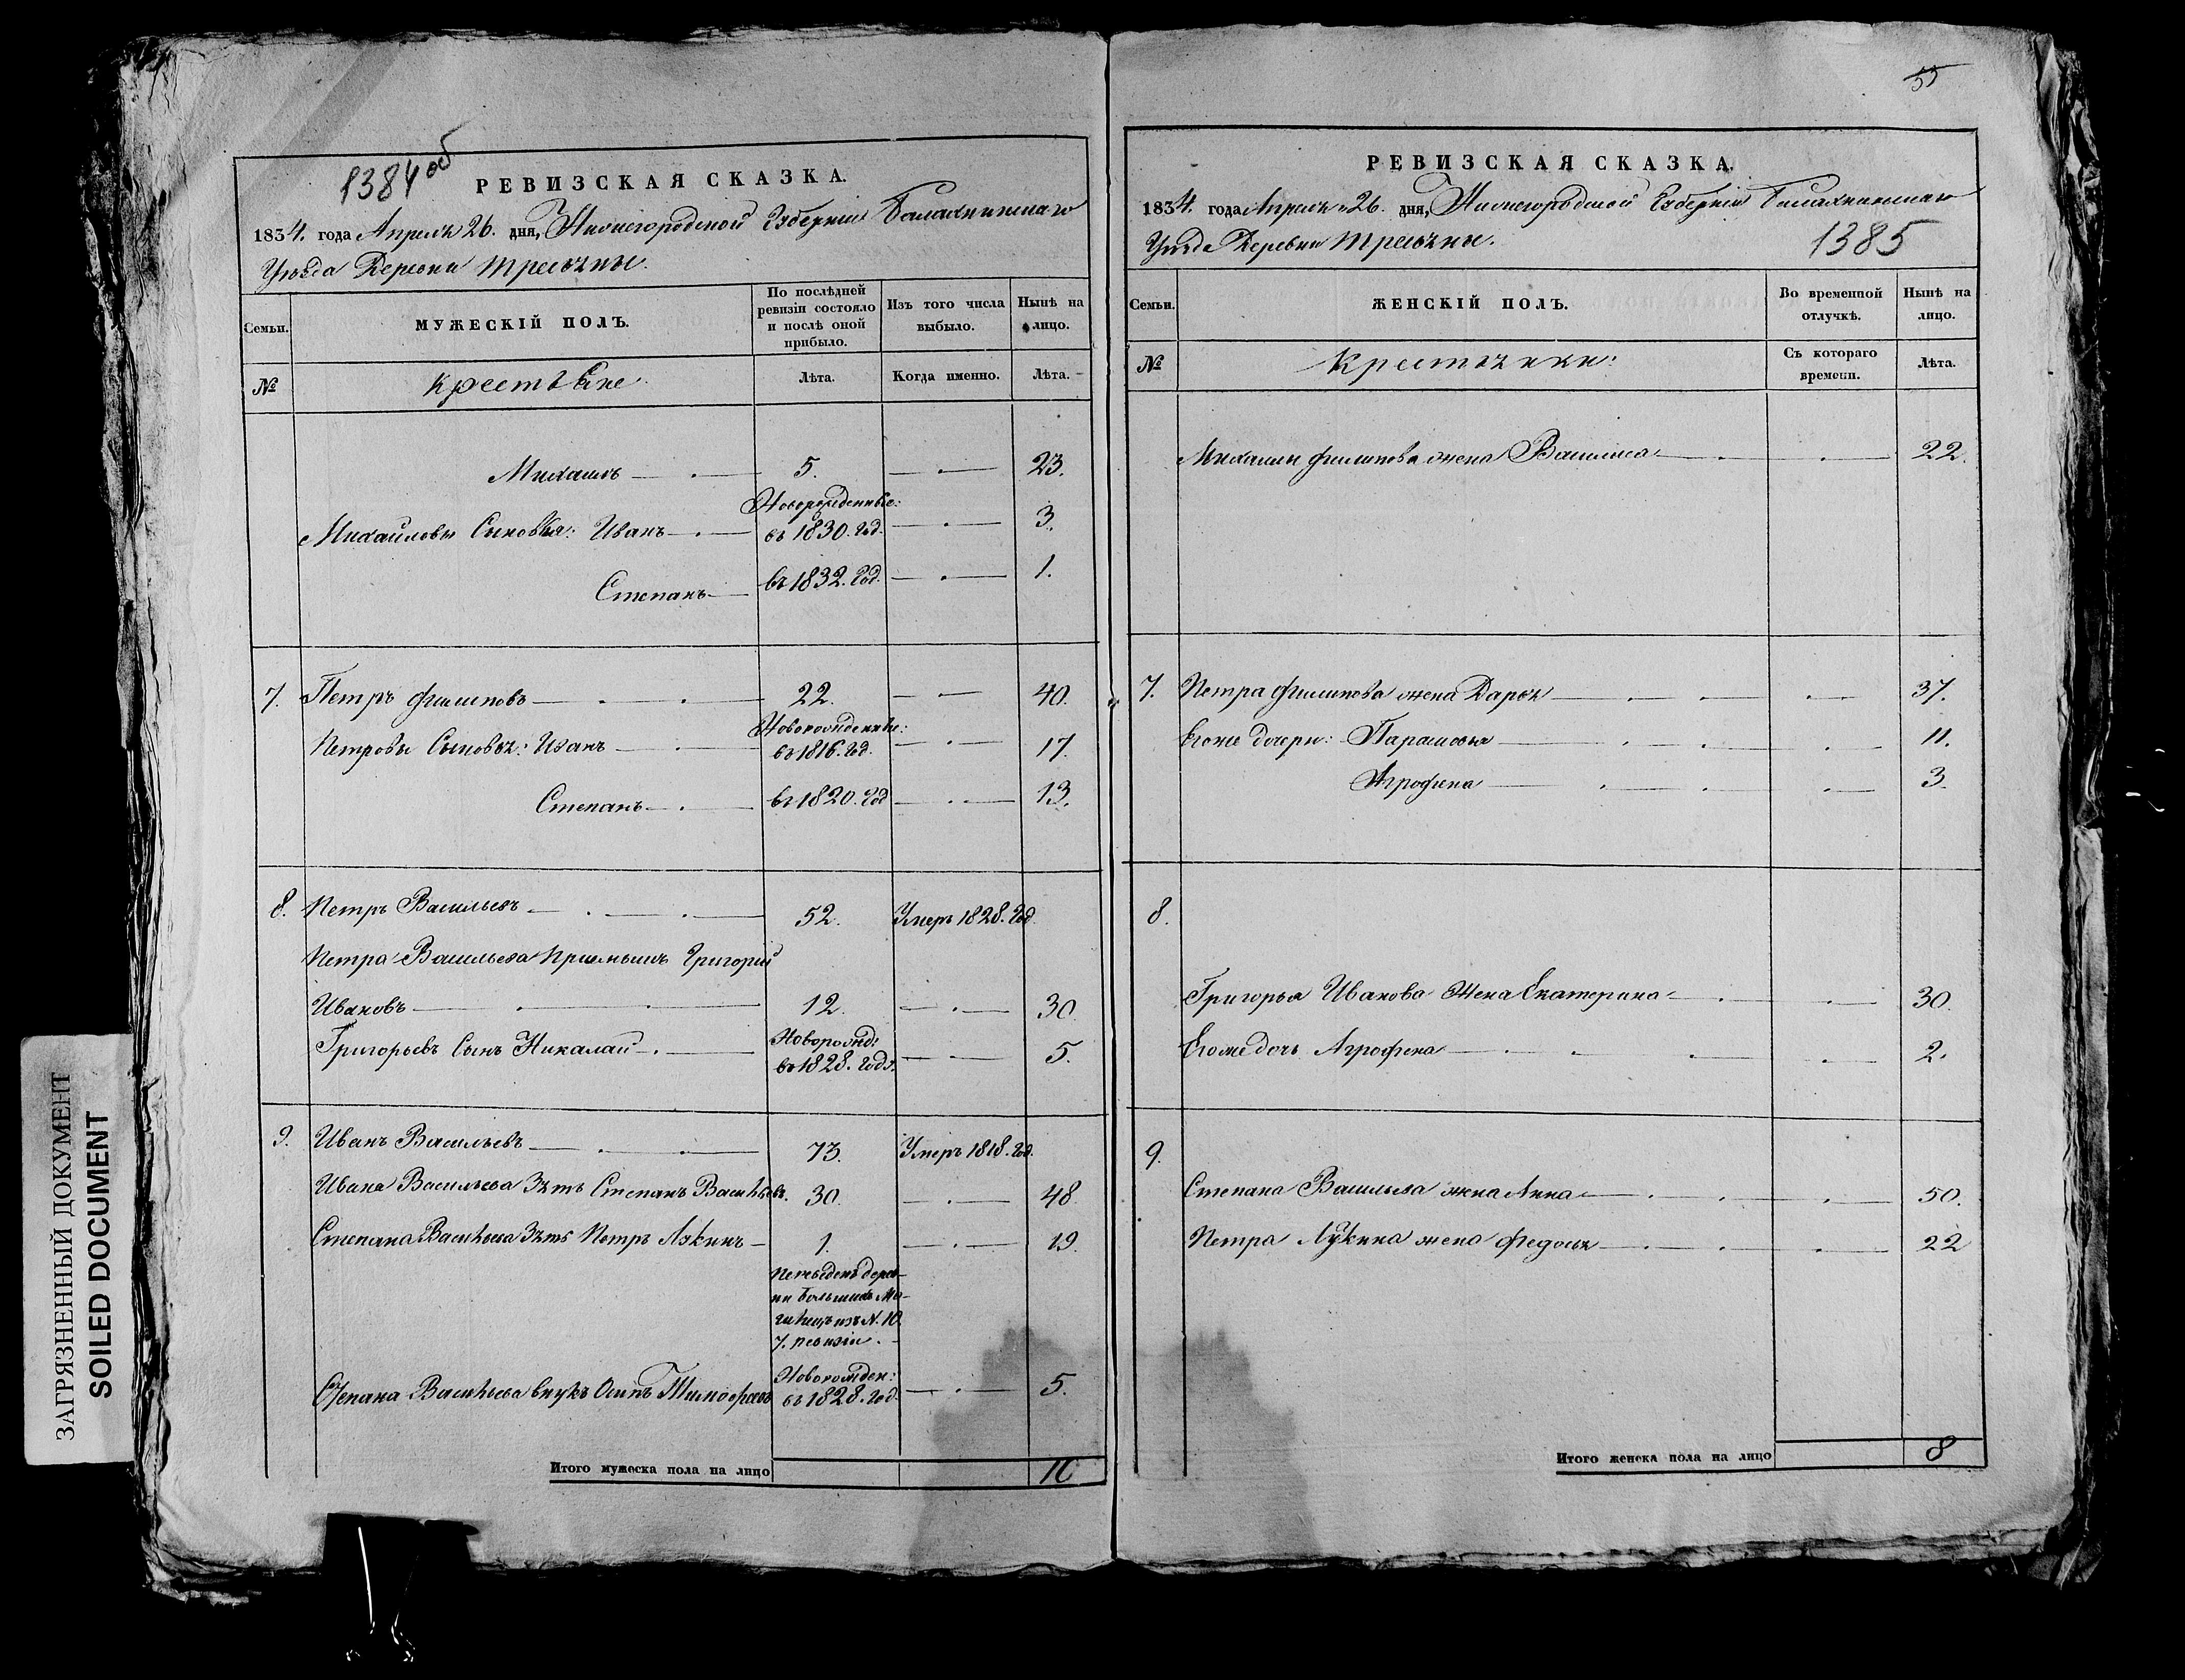 1384 об
РЕВИЗСКАЯ СКАЗКА.
1834. года Апреля 26. дня, Нижегородской Губернии Балахнинскаго
Уѣзда Деревни
Семьи.
МУЖЕСКІЙ ПОЛЪ.
По послѣдней ревизіи состояло и послѣ оной прибыло.
Изъ того числа выбыло.
Нынѣ на лицо.
№
Крестьяне
Лѣта.
Когда именно.
Лѣта.
Михаилъ 5. 23.
Новорожденные:
Михайловы Сыновья: Иванъ въ 1830. год. 3.
Степанъ въ 1832. год. 1.
7. Петръ Филиповъ 22. 40.
Новорожденные:
Петровы Сыновья: Иванъ въ 1816. год. 17.
Степанъ въ 1820. год 13.
8. Петръ Васильевъ 52. Умеръ 1828. год
Петра Васильева Приемышъ Григорий
Ивановъ 12. 30.
Новорожд:
Григорьевъ Сынъ Николай въ 1828. годъ. 5.
9. Иванъ Васильевъ 73. Умеръ 1818. год.
Ивана Васильева Зять Степанъ Васильевъ. 30. 48.
Степана Васильева Зять Петръ Лукинъ 1. 19.
дерев-
ни Большихъ
изъ N. 10.
7. ревизіи.
Новорожден:
Степана Васильева внукъ Осипъ Тимофеевъ въ 1828. год. 5.
Итого мужеска пола на лицо 10
55
РЕВИЗСКАЯ СКАЗКА.
1834. года Апреля 26. дня, Нижегородской Губернии Балахнинскаго
Уѣзда Деревни
1385
Семьи.
ЖЕНСКІЙ ПОЛЪ.
Во временной отлучкѣ.
Нынѣ на лицо.
№
Крестьянки:
Съ котораго времени.
Лѣта.
Михаила Филипова жена Василиса 22.
7. Петра Филипова жена Дарья 37.
Егоже дочери: Парасковья 11.
Агрофена 3.
8.
Григорья Иванова Жена Екатерина 30.
Егоже дочь Агрофена 2.
9.
Степана Васильева жена Анна 50.
Петра Лукина жена Федосья 22
Итого женска пола на лицо 8
ЗАГРЯЗНЕННЫЙ ДОКУМЕНТ
SOILED DOCUMENT